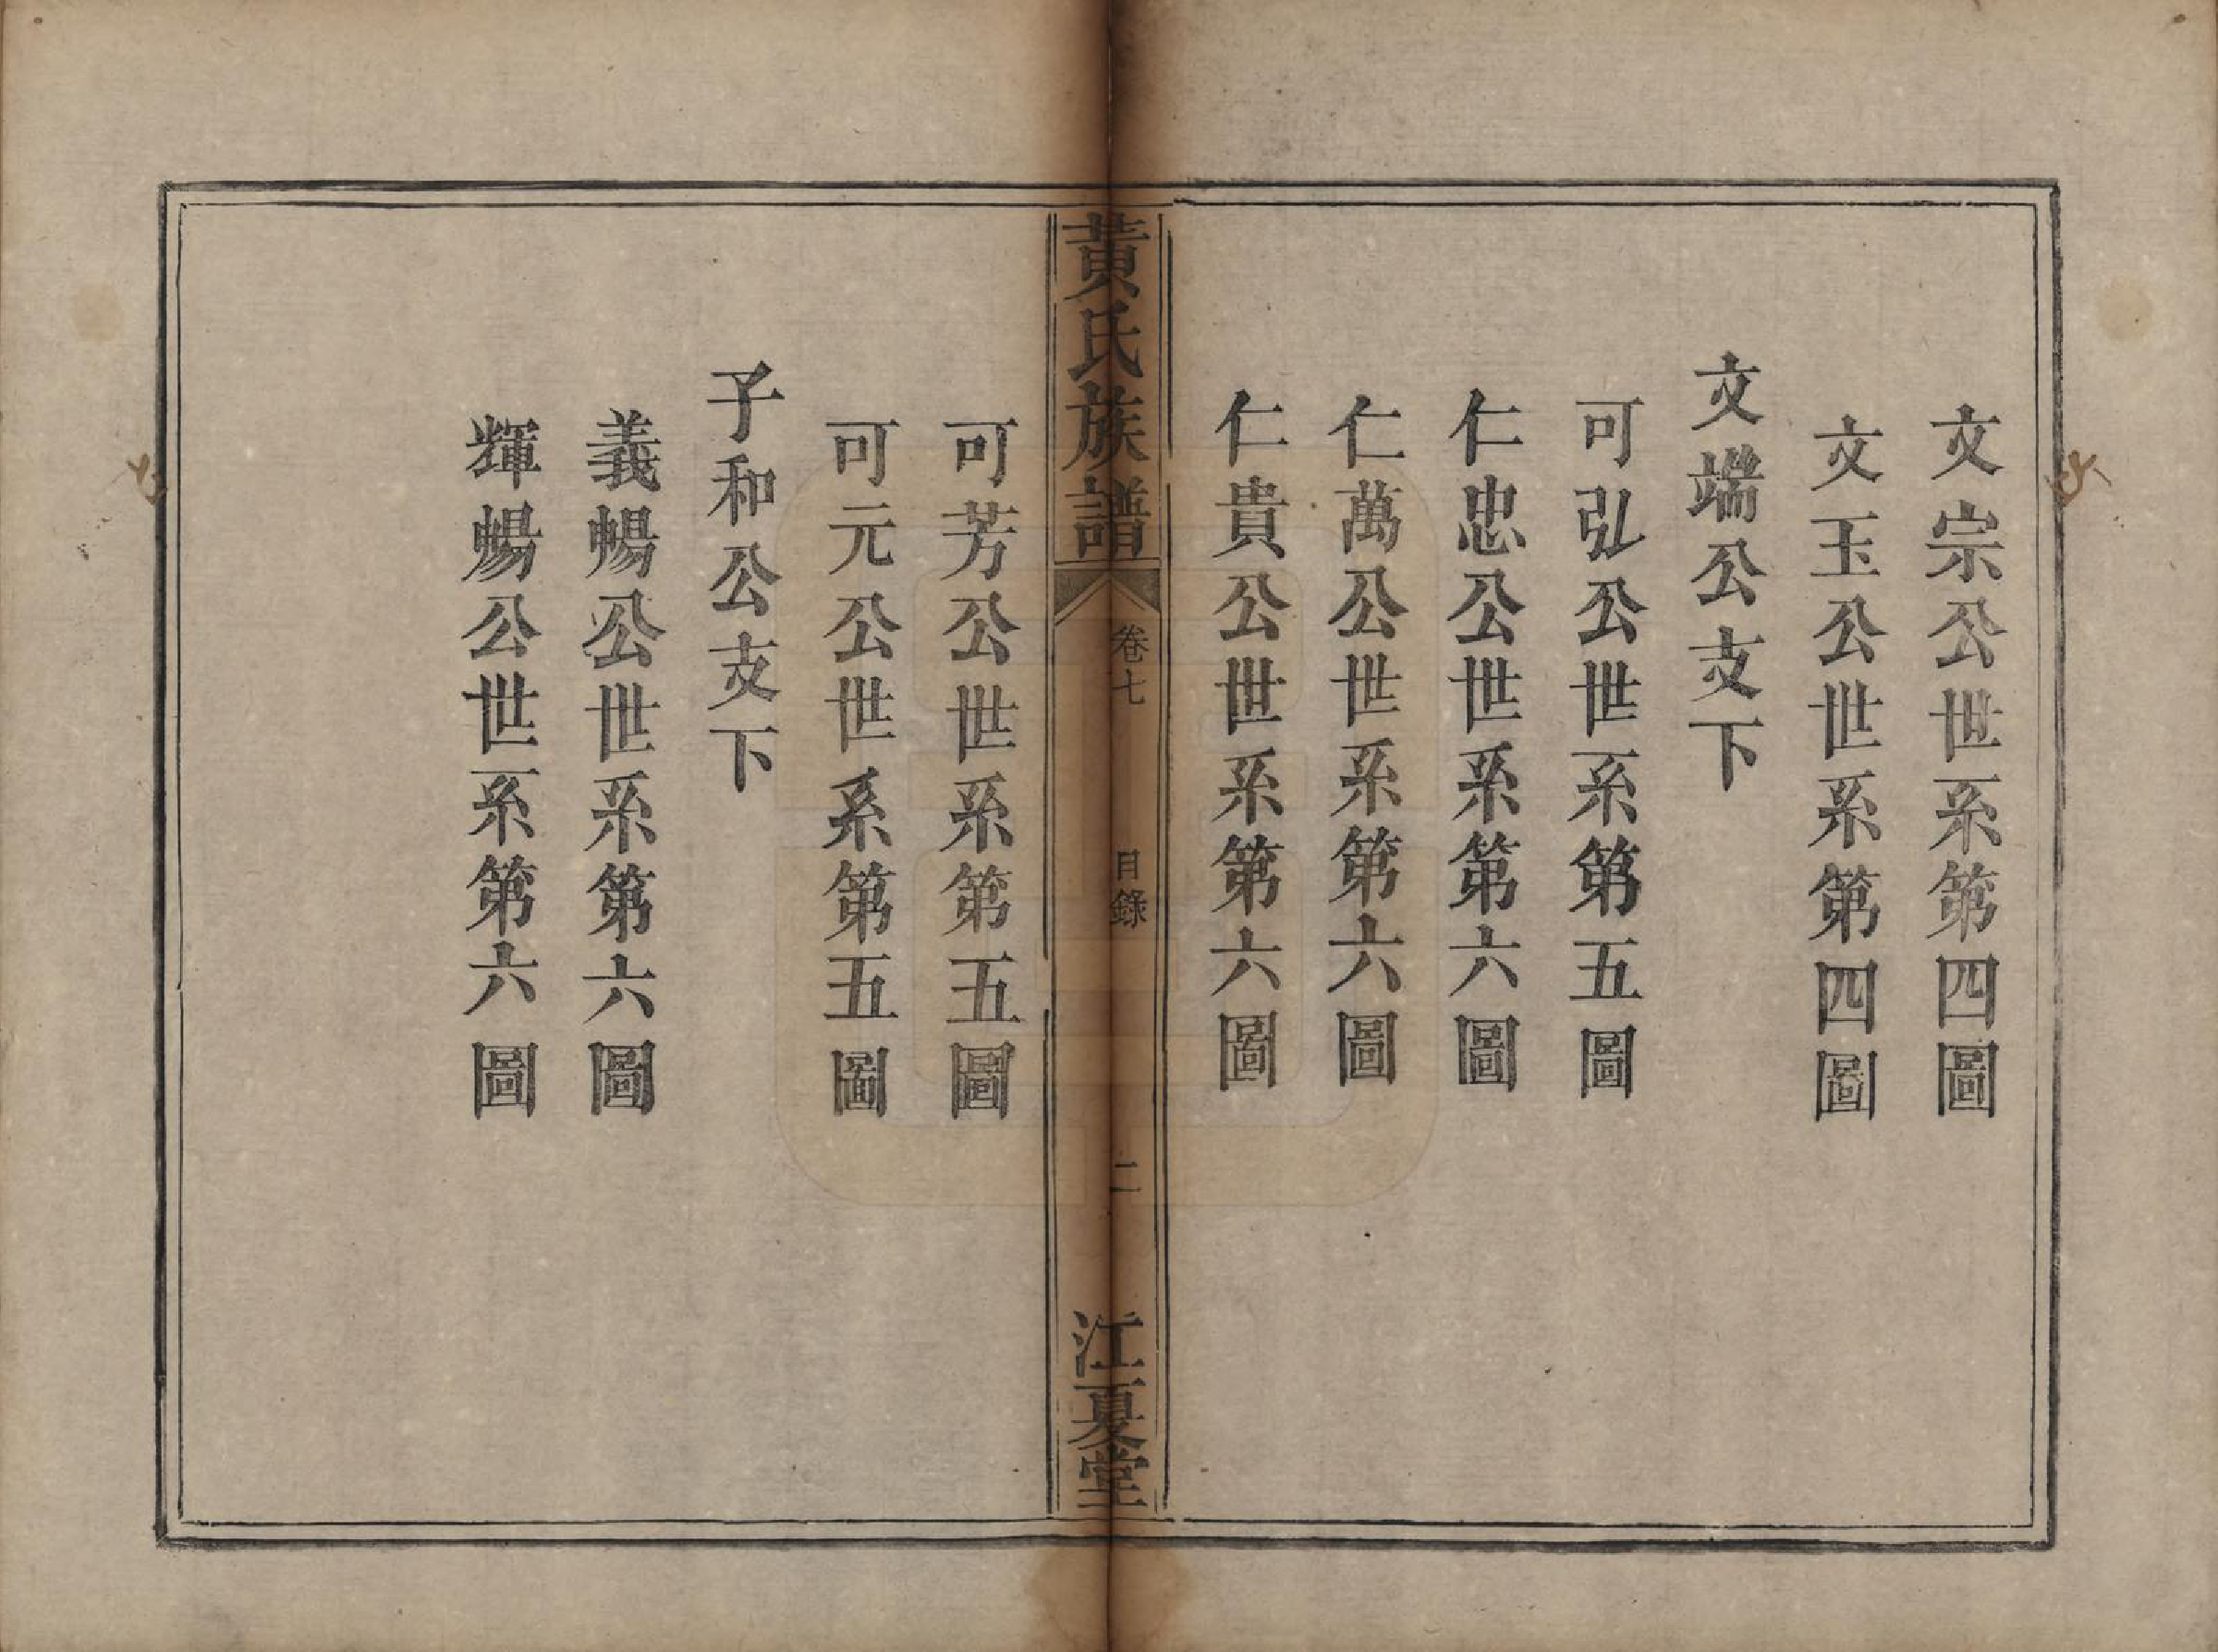 文宗公世系第四圖
文玉公世系第四圖
文端公支下
可弘公世系第五圖
仁忠公世系第六圖
仁萬公世系第六圖
仁貴公世系第六圖
黃氏族譜
卷七
目錄
二
江夏堂
可芳公世系第五圖
可元公世系第五圖
子和公支下
義暢公世系第六圖
輝暢公世系第六圖